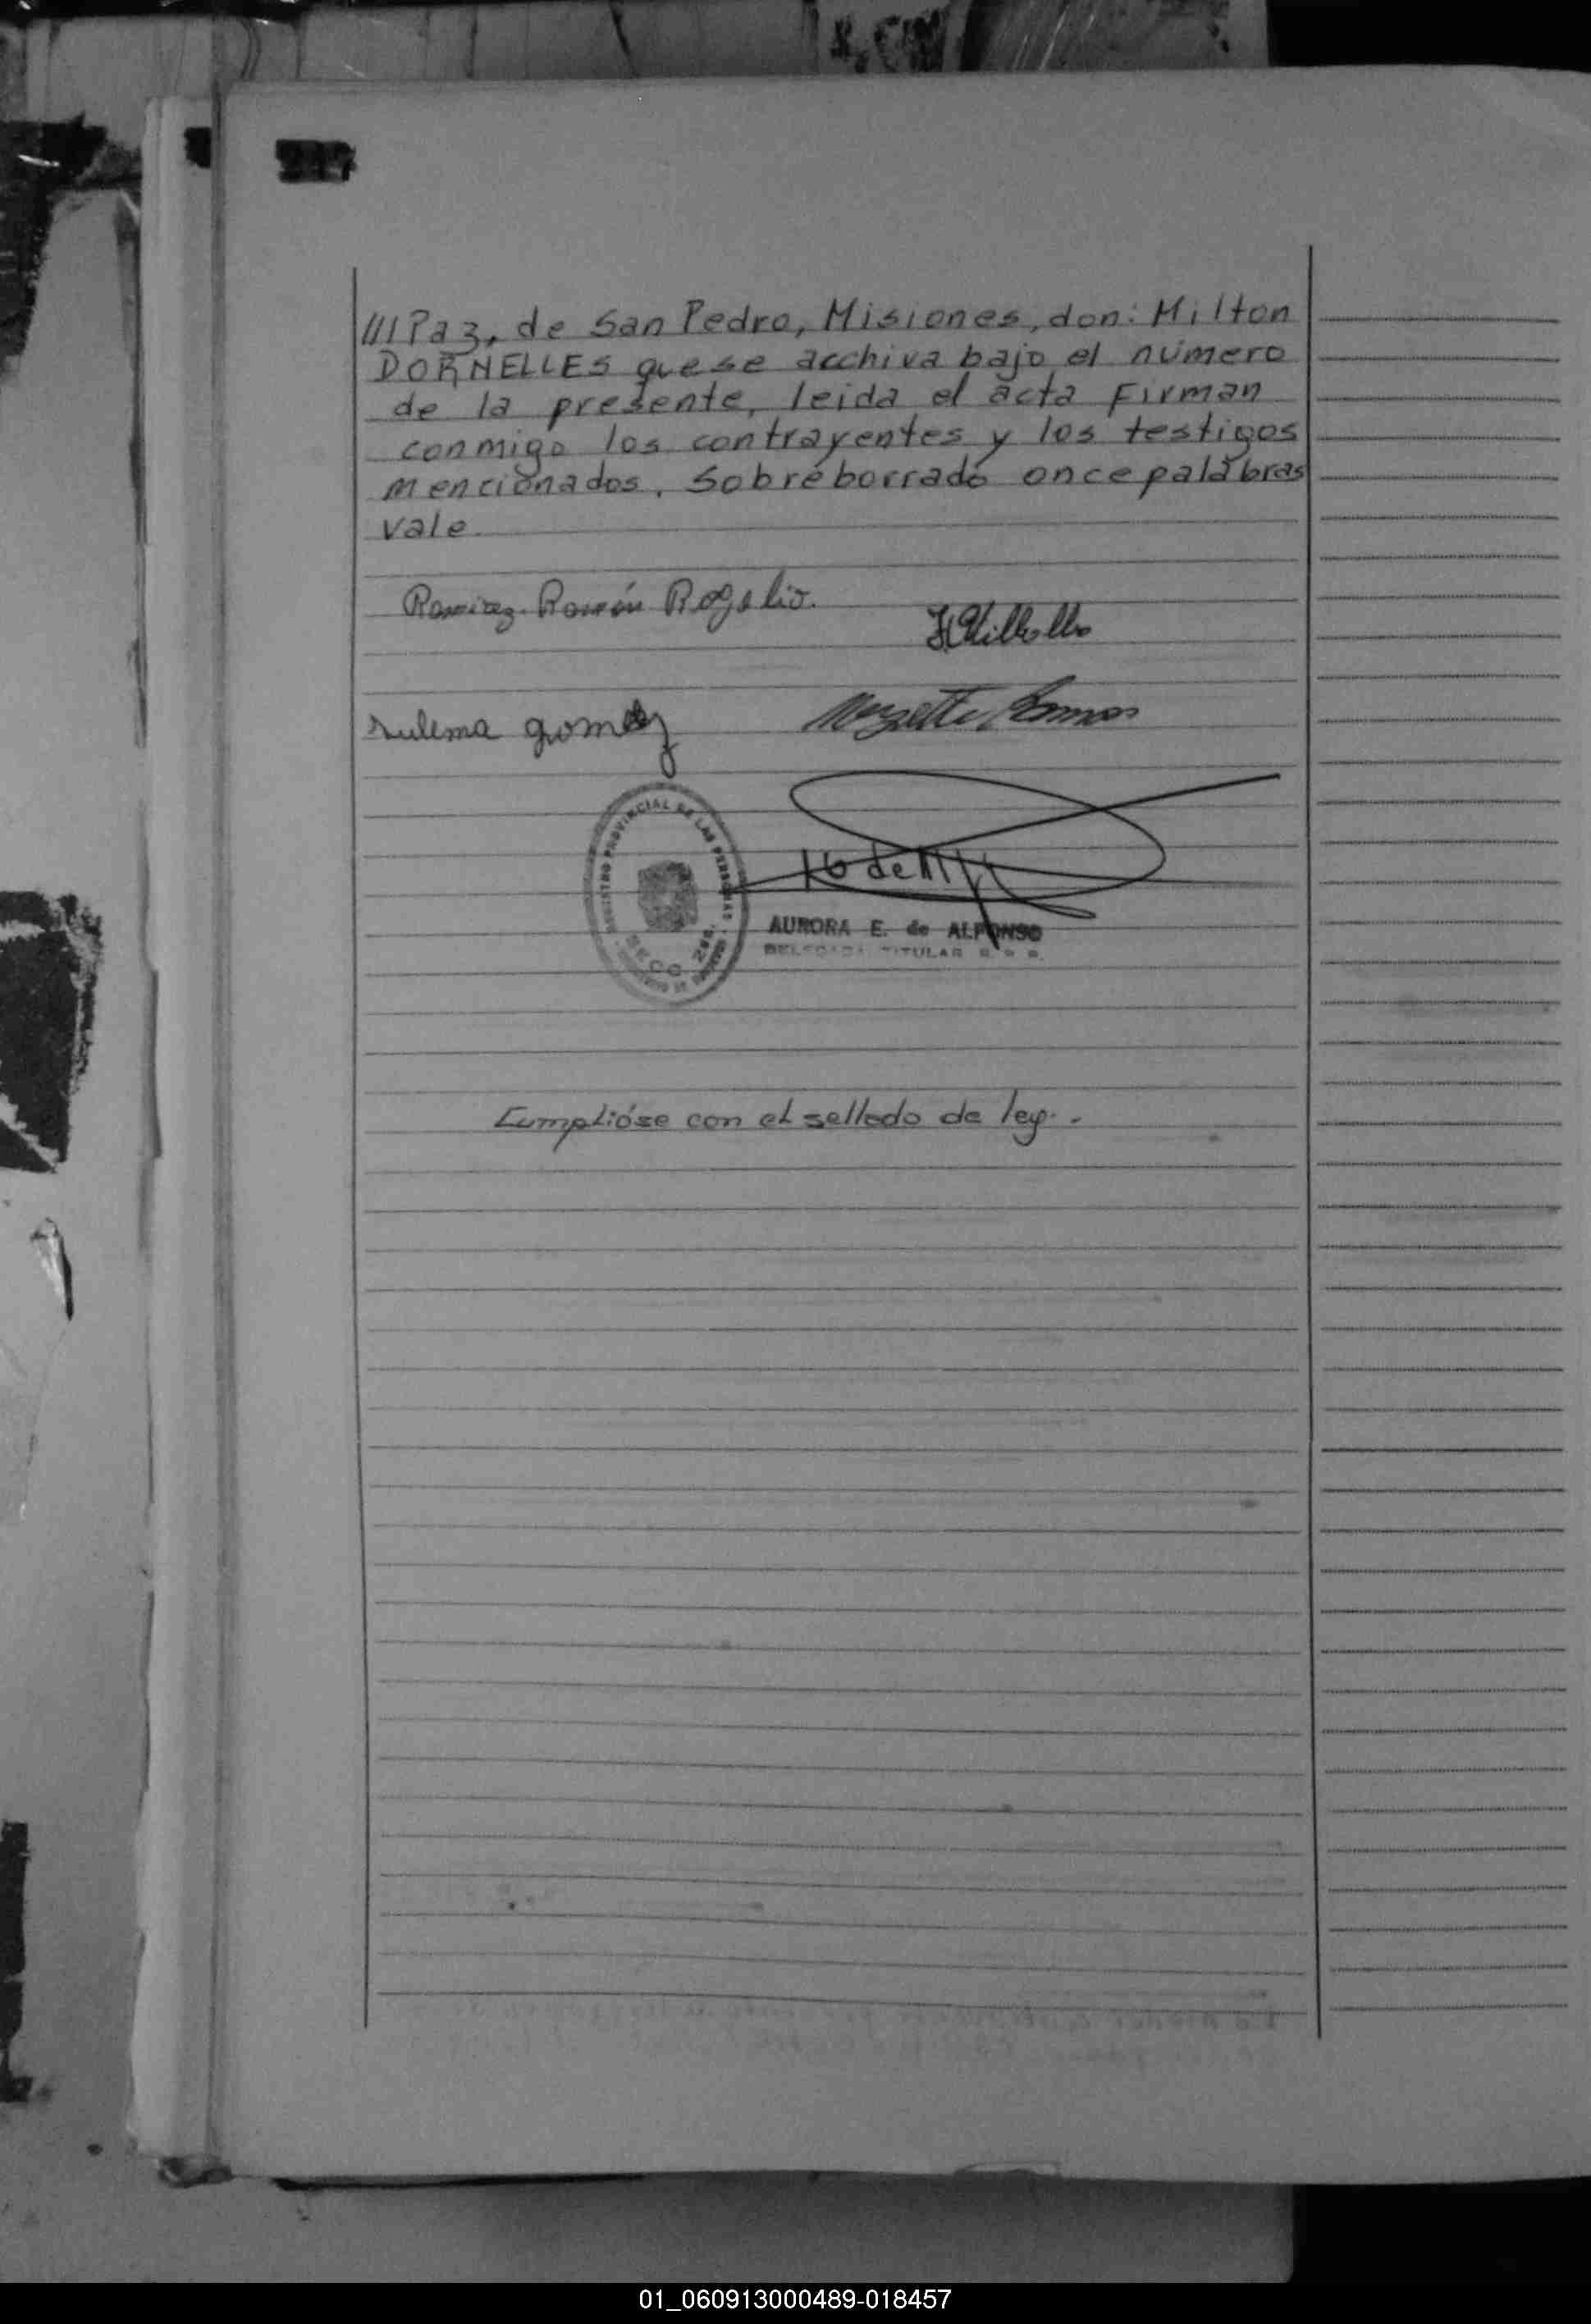 ///Paz, de San Pedro, Misiones, don: Milton
DORNELLES que se acchiva bajo el número
de la presente, leida el acta Firman
conmigo los contrayentes y los testigos
mencionados. Sobreborrado once palabras
vale
Ramirez Ramón Rogelio.
sulema gomez
REGISTRO PROVINCIAL DE LAS PERSONAS
SECC.
AURORA E. de ALFONSO
DELEGADA TITULAR
Cumplióse con el sellado de ley..
01_060913000489-018457